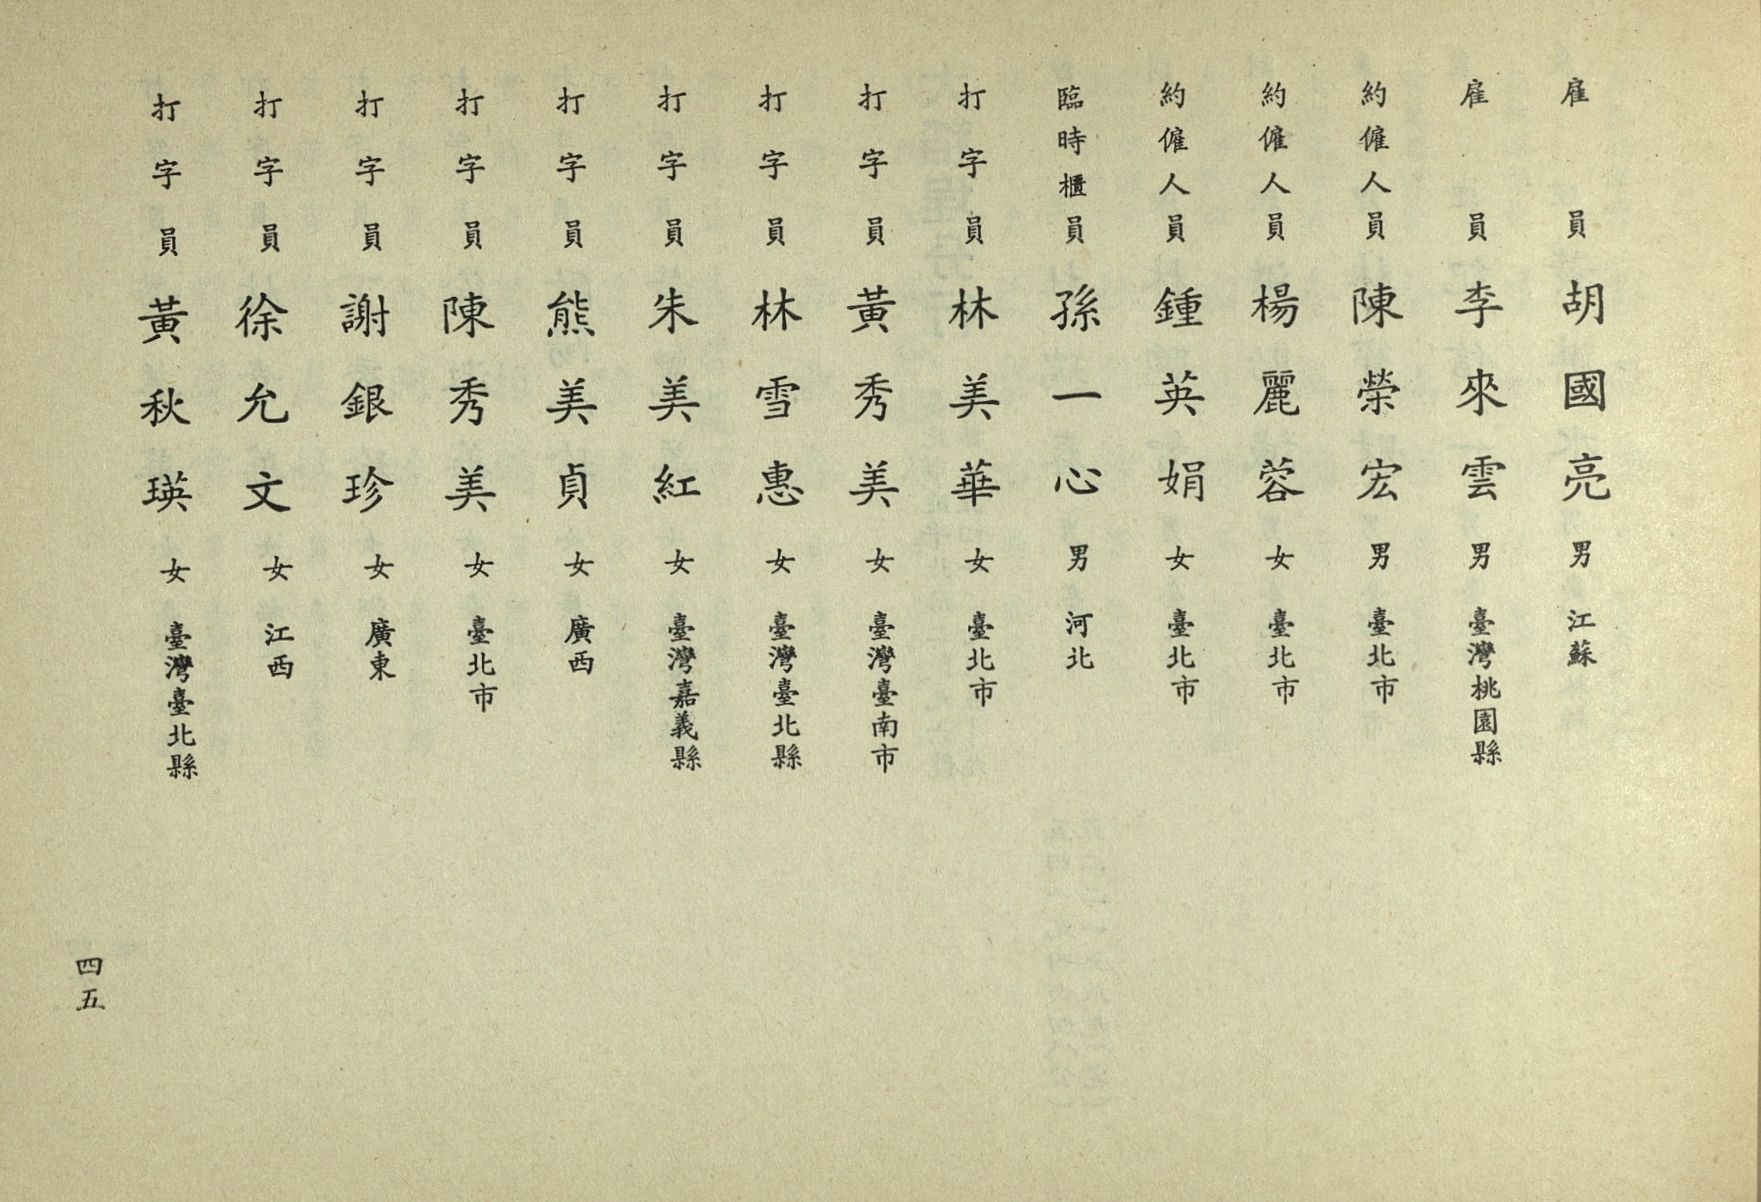 雇員胡國亮男江蘇
雇員李來雲男臺灣桃園縣
約僱人員陳榮宏男臺北市
約僱人員楊麗蓉女臺北市
約僱人員鍾英娟女臺北市
臨時櫃員孫一心男河北
打字員林美華女臺北市
打字員黃秀美女臺灣臺南市
打字員林雪惠女臺灣臺北縣
打字員朱美紅女臺灣嘉義縣
打字員熊美貞女廣西
打字員陳秀美女臺北市
打字員謝銀珍女廣東
打字員徐允文女江西
打字員黃秋瑛女臺灣臺北縣
四五